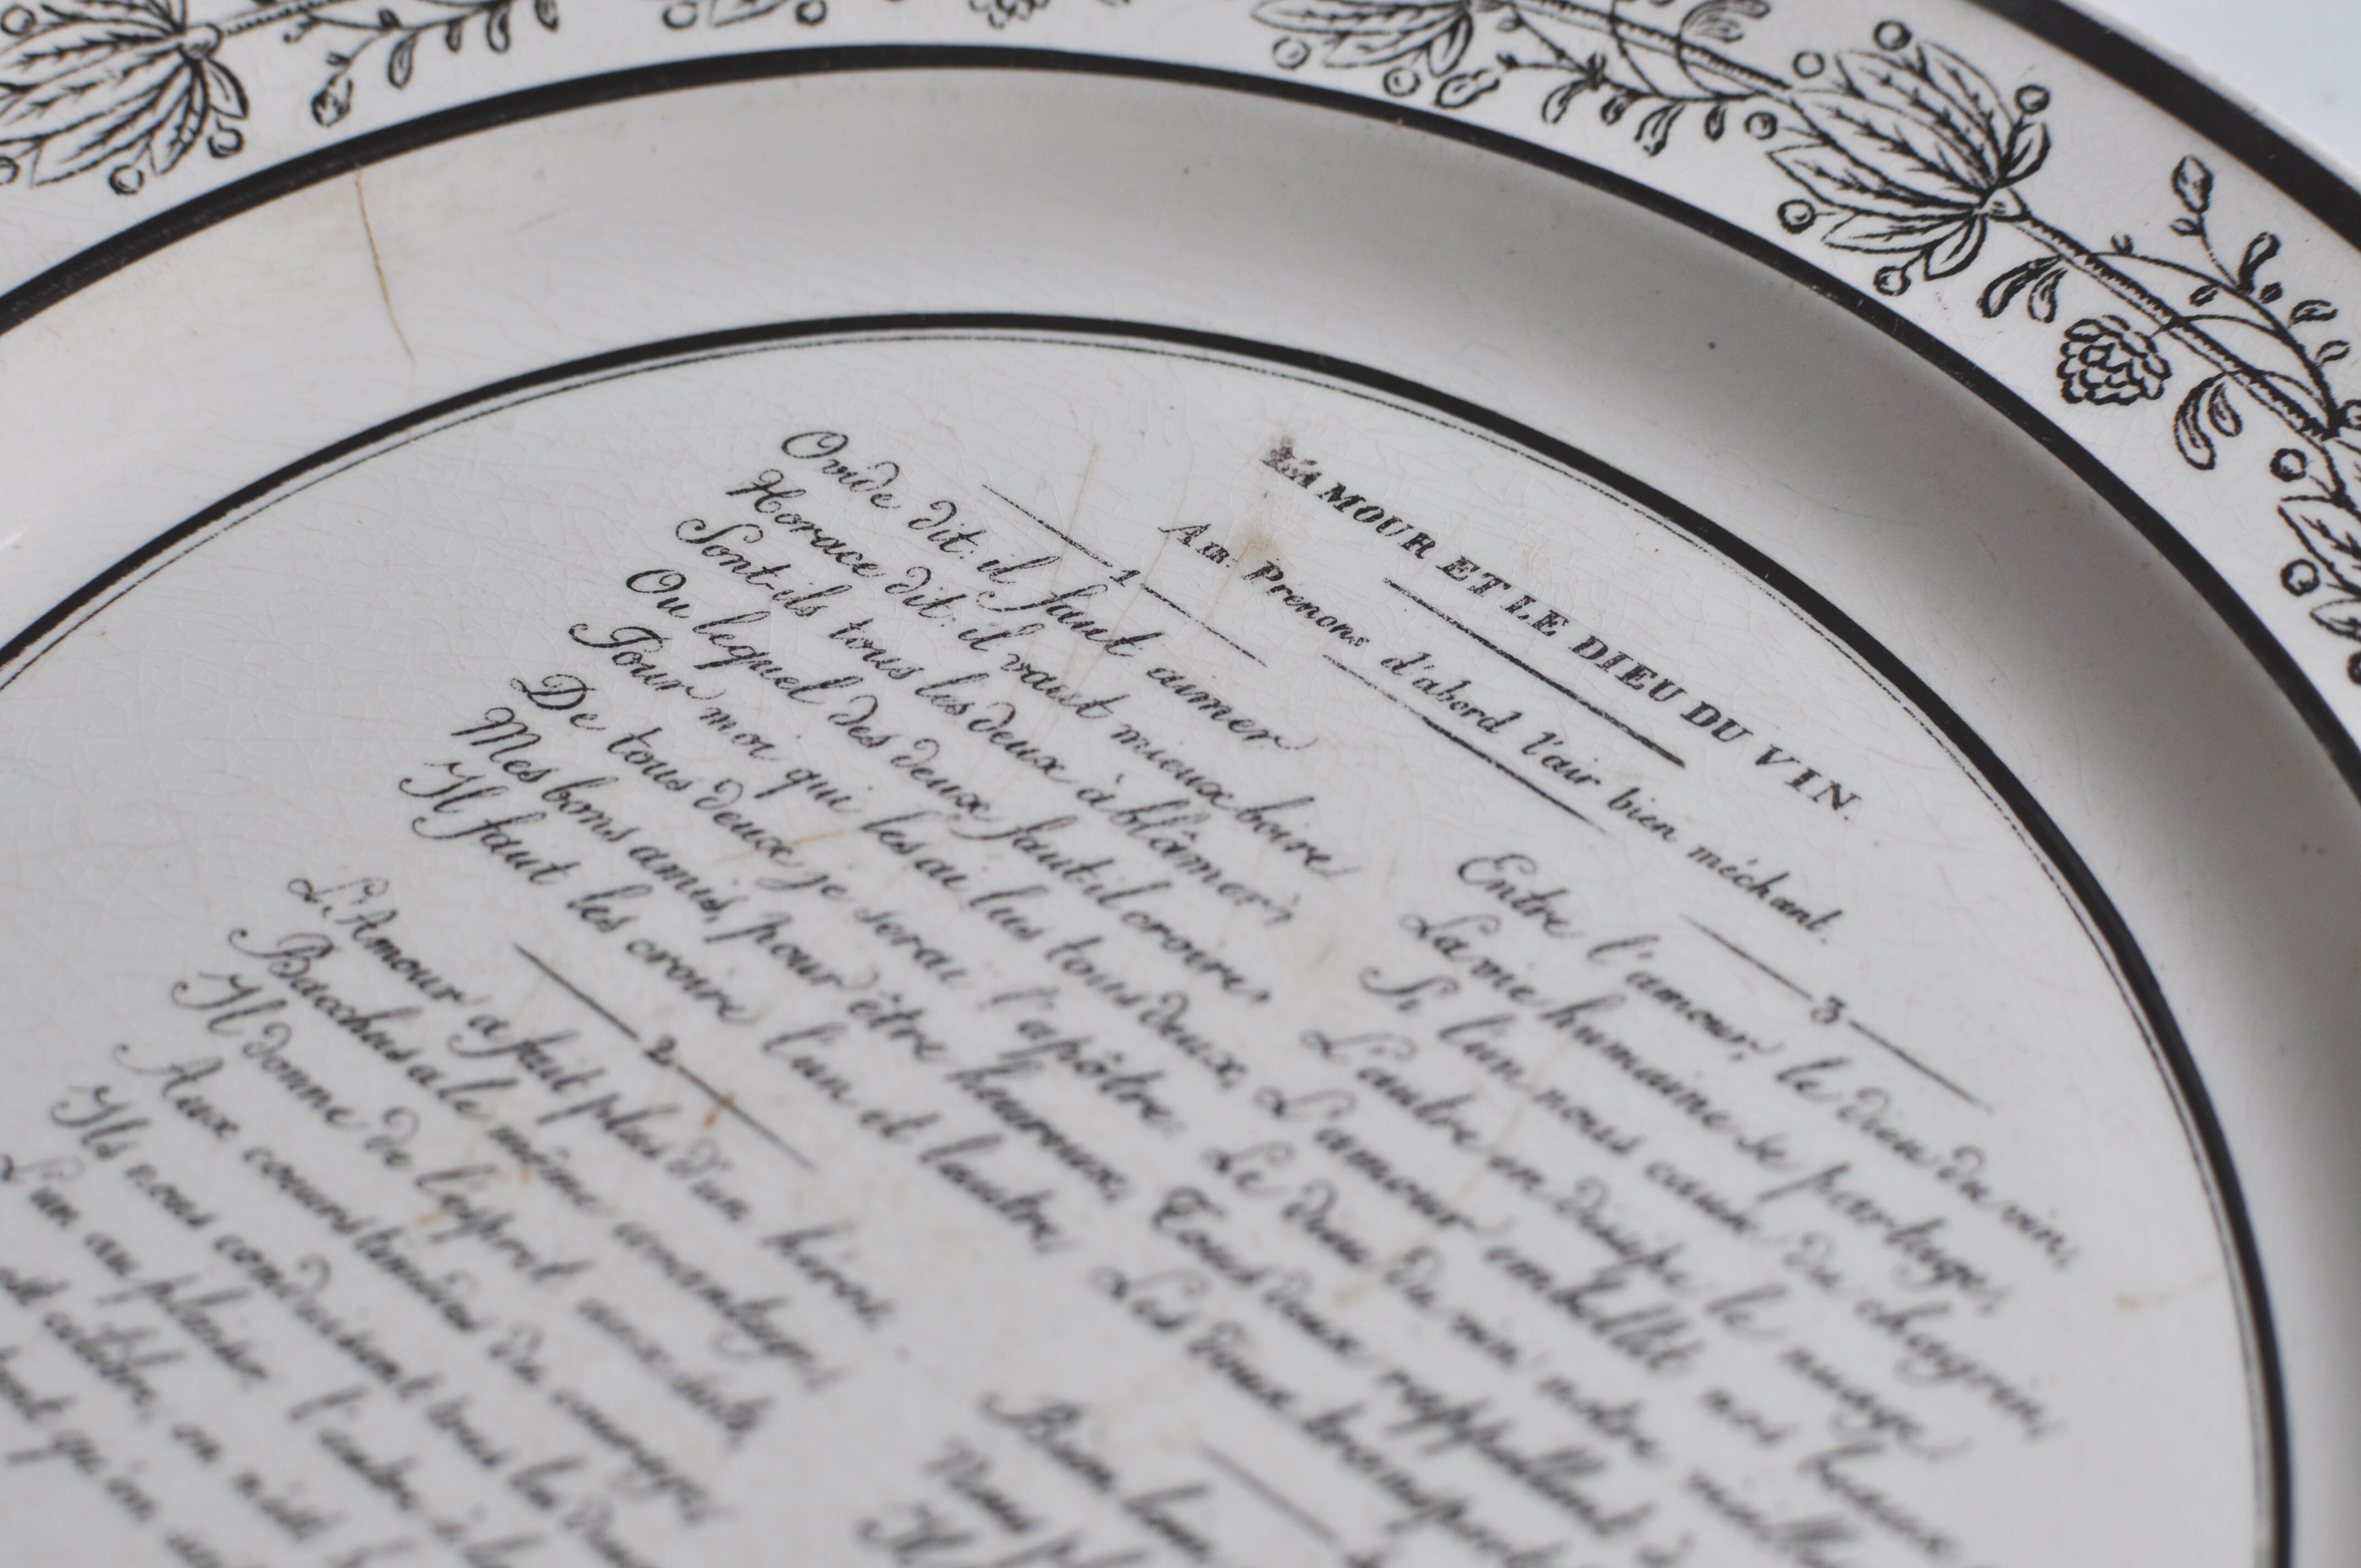 L'AMOUR ET LE DIEU DU VIN.
Air: Prenons d'abord l'air bien méchant.
1
Ovide dit: il faut aimer
Horace dit: il vaut mieux boire
Sont-ils tous les deux à blâmer?
Ou lequel des deux faut il croire?
Pour moi qui les ai lus tous deux,
De tous deux je serai l'apôtre.
Mes bons amis, pour être heureux,
Il faut les croire l'un et l'autre.
2
L'Amour a fait plus d'un héros,
Bacchus a le même avantage,
Il donne de l'esprit aux sots,
Aux cœurs timides du courage,
Ils nous conduisent tous les deux
L'un au plaisir, l'autre à la
3
Entre l'amour, le dieu du vin,
La vie humaine se partage,
Si l'un nous cause du chagrin,
L'autre en dissipe le nuage
L'amour embellit nos beaux
Le dieu du vin notre
Tous deux rappellent
Les doux transports
Bien
Nous
Il